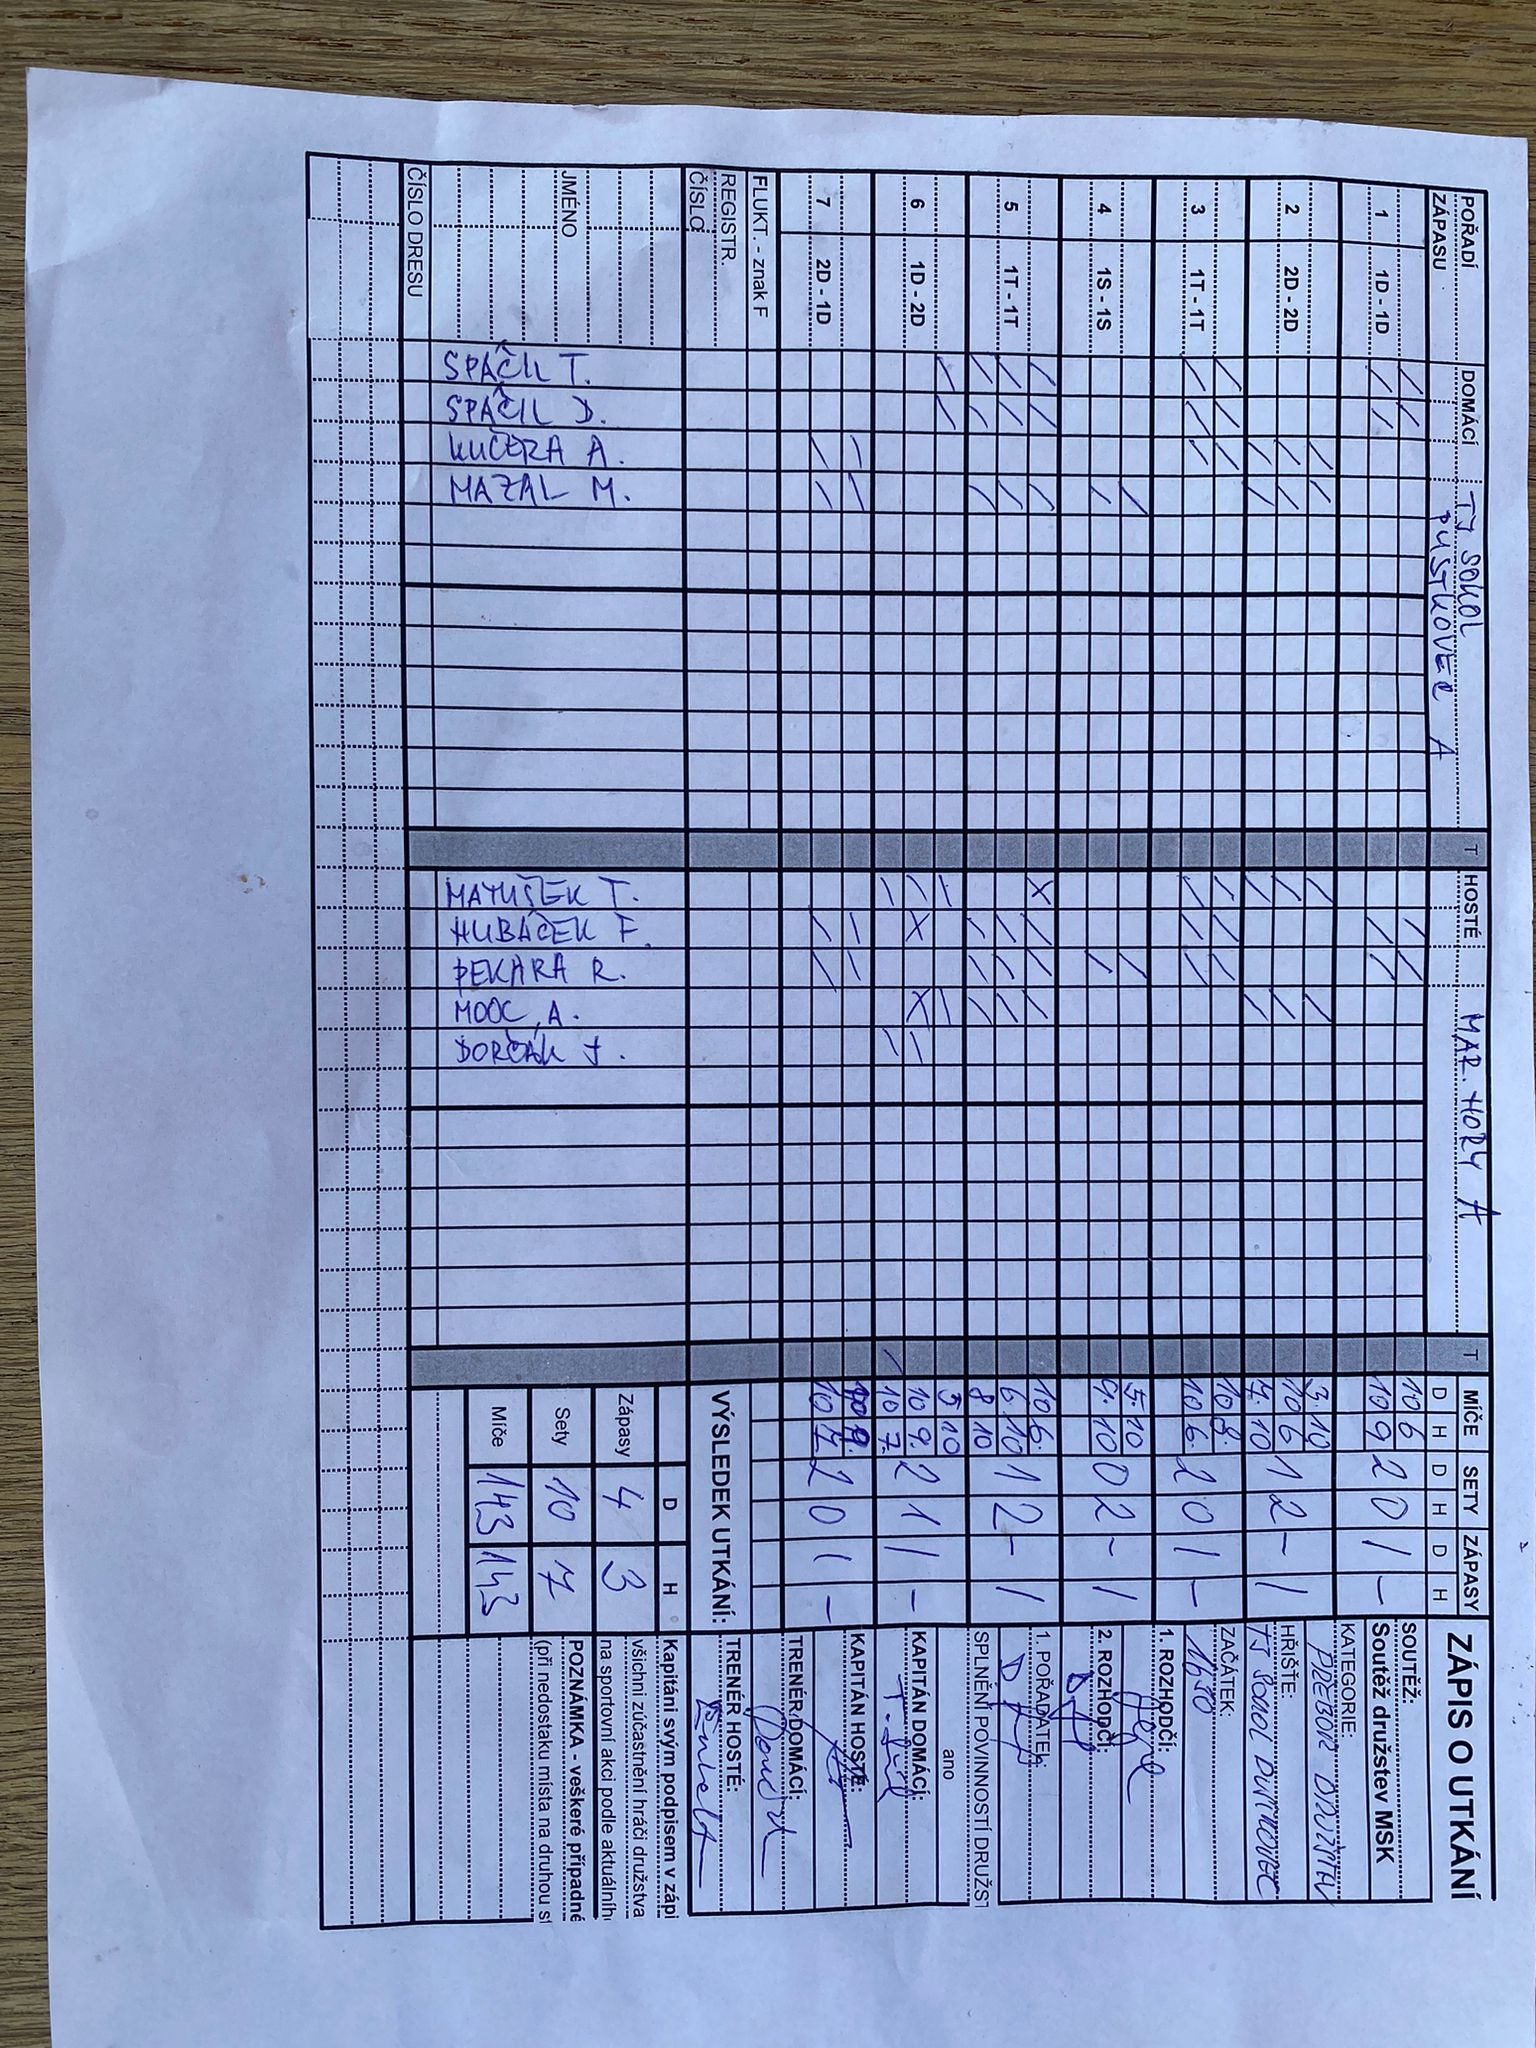 POŘADÍ ZÁPASU
DOMÁCÍ TJ SOKOL PUSTKOVEC A
T
HOSTÉ MAR. HORY A
T
MÍČE SETY ZÁPASY
D H D H D H
ZÁPIS O UTKÁNÍ
1 1D - 1D
10 6
10 9 2 0 1 -
SOUTĚŽ:
Soutěž družstev MSK
2 2D - 2D
3 10
10 6 1 2 - 1
7 10
KATEGORIE:
HŘIŠTĚ:
TJ SOKOL PUSTKOVEC
3 1T - 1T
10 8
10 6 2 0 1 -
ZAČÁTEK:
1630
4 1S - 1S
5 10
9 10 0 2 - 1
1. ROZHODČÍ:
2. ROZHODČÍ:
5 1T - 1T X
10 6
6 10 1 2 - 1
8 10
1. POŘADATEL:
SPLNĚNÍ POVINNOSTÍ DRUŽST
6 1D - 2D X X
5 10
10 9 2 1 1 -
10 7
ano
KAPITÁN DOMÁCÍ:
7 2D - 1D
10 7 2 0 1 -
KAPITÁN HOSTÉ:
TRENÉR DOMÁCÍ:
FLUKT. - znak F
REGISTR. ČÍSLO
VÝSLEDEK UTKÁNÍ:
TRENÉR HOSTÉ:
JMÉNO
SPÁČIL T.
SPÁČIL D.
KUČERA A.
MAZAL M.
MATUŠEK T.
HUBÁČEK F.
PEKARA R.
MOOC A.
DORČÁK J.
D H
Zápasy 4 3
Sety 10 7
Míče 143 143
Kapitáni svým podpisem v zápi
všichni zúčastnění hráči družstva
na sportovní akci podle aktuálníh
POZNÁMKA - veškeré případné
(při nedostaku místa na druhou st
ČÍSLO DRESU